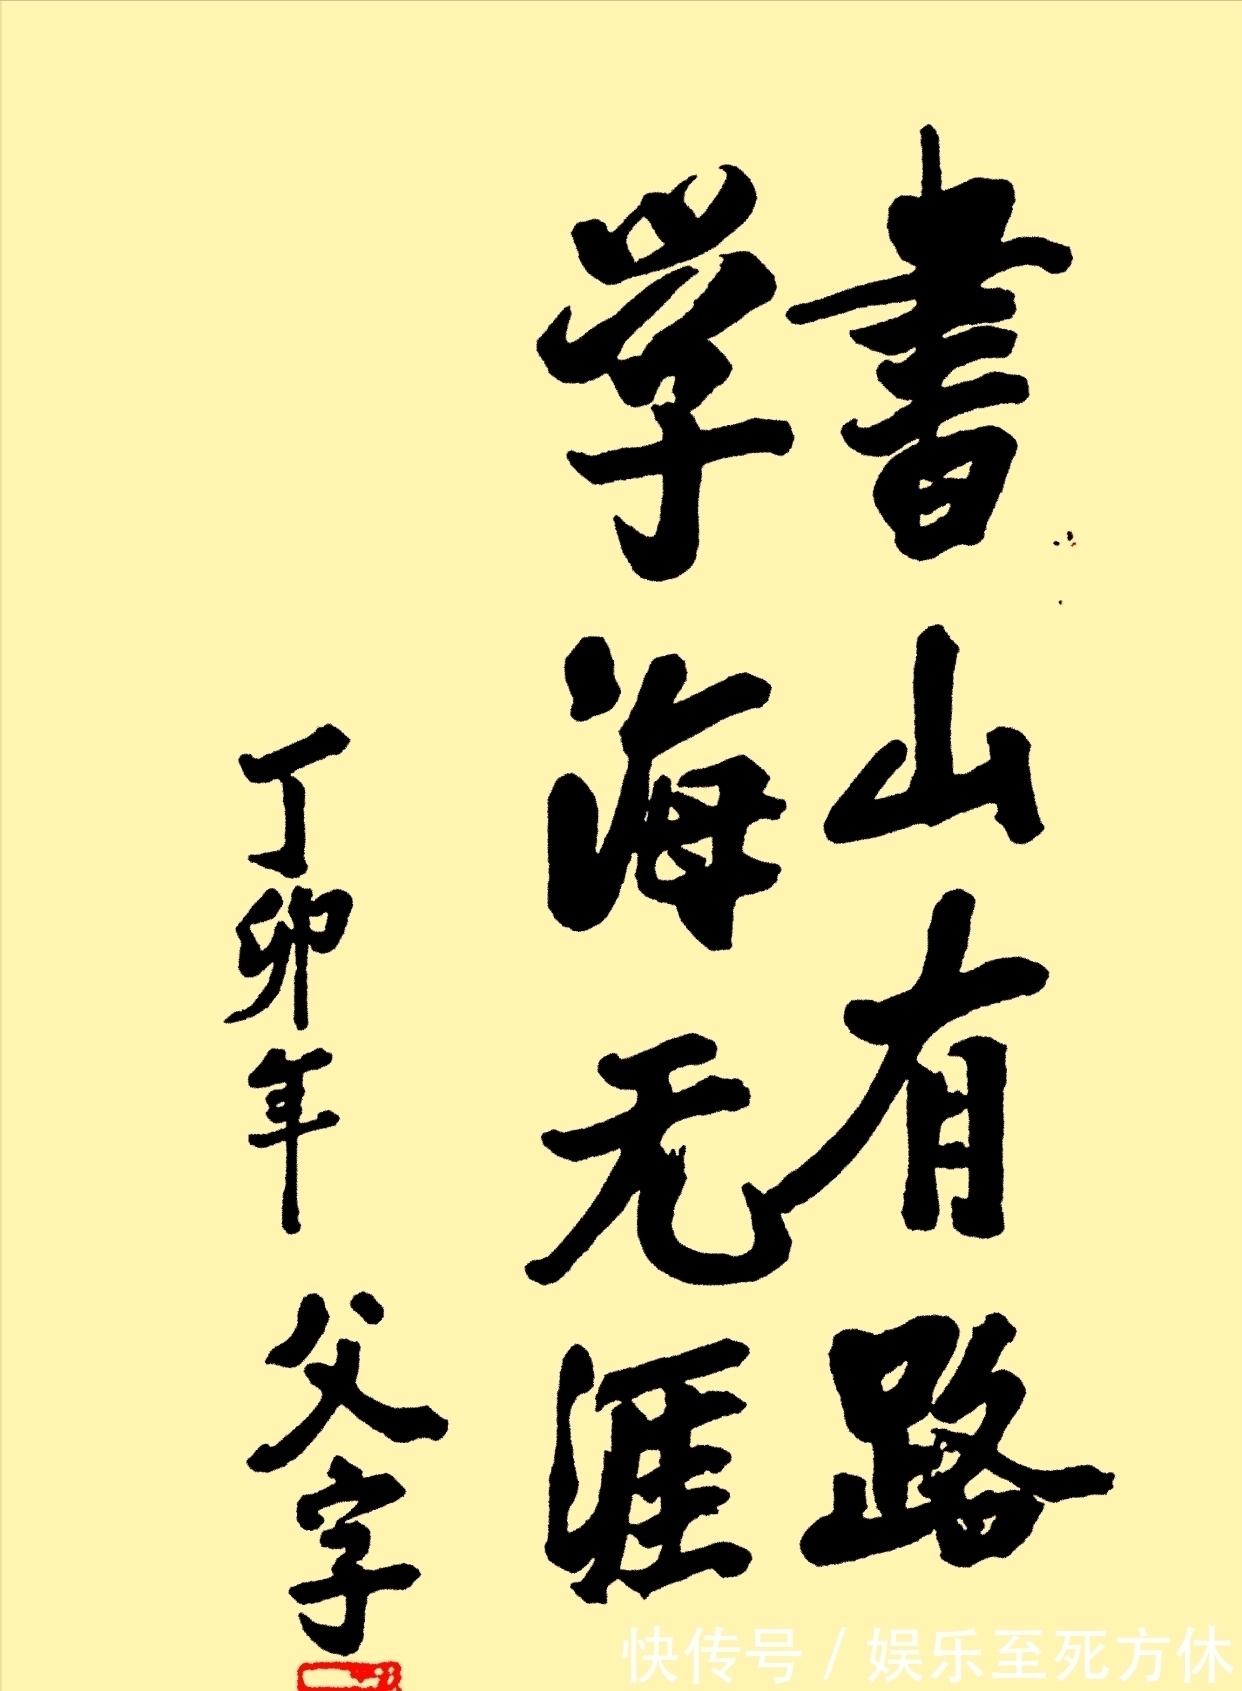 書山有路
学海无涯
丁卯年 父字
快传号/娱乐至死方休